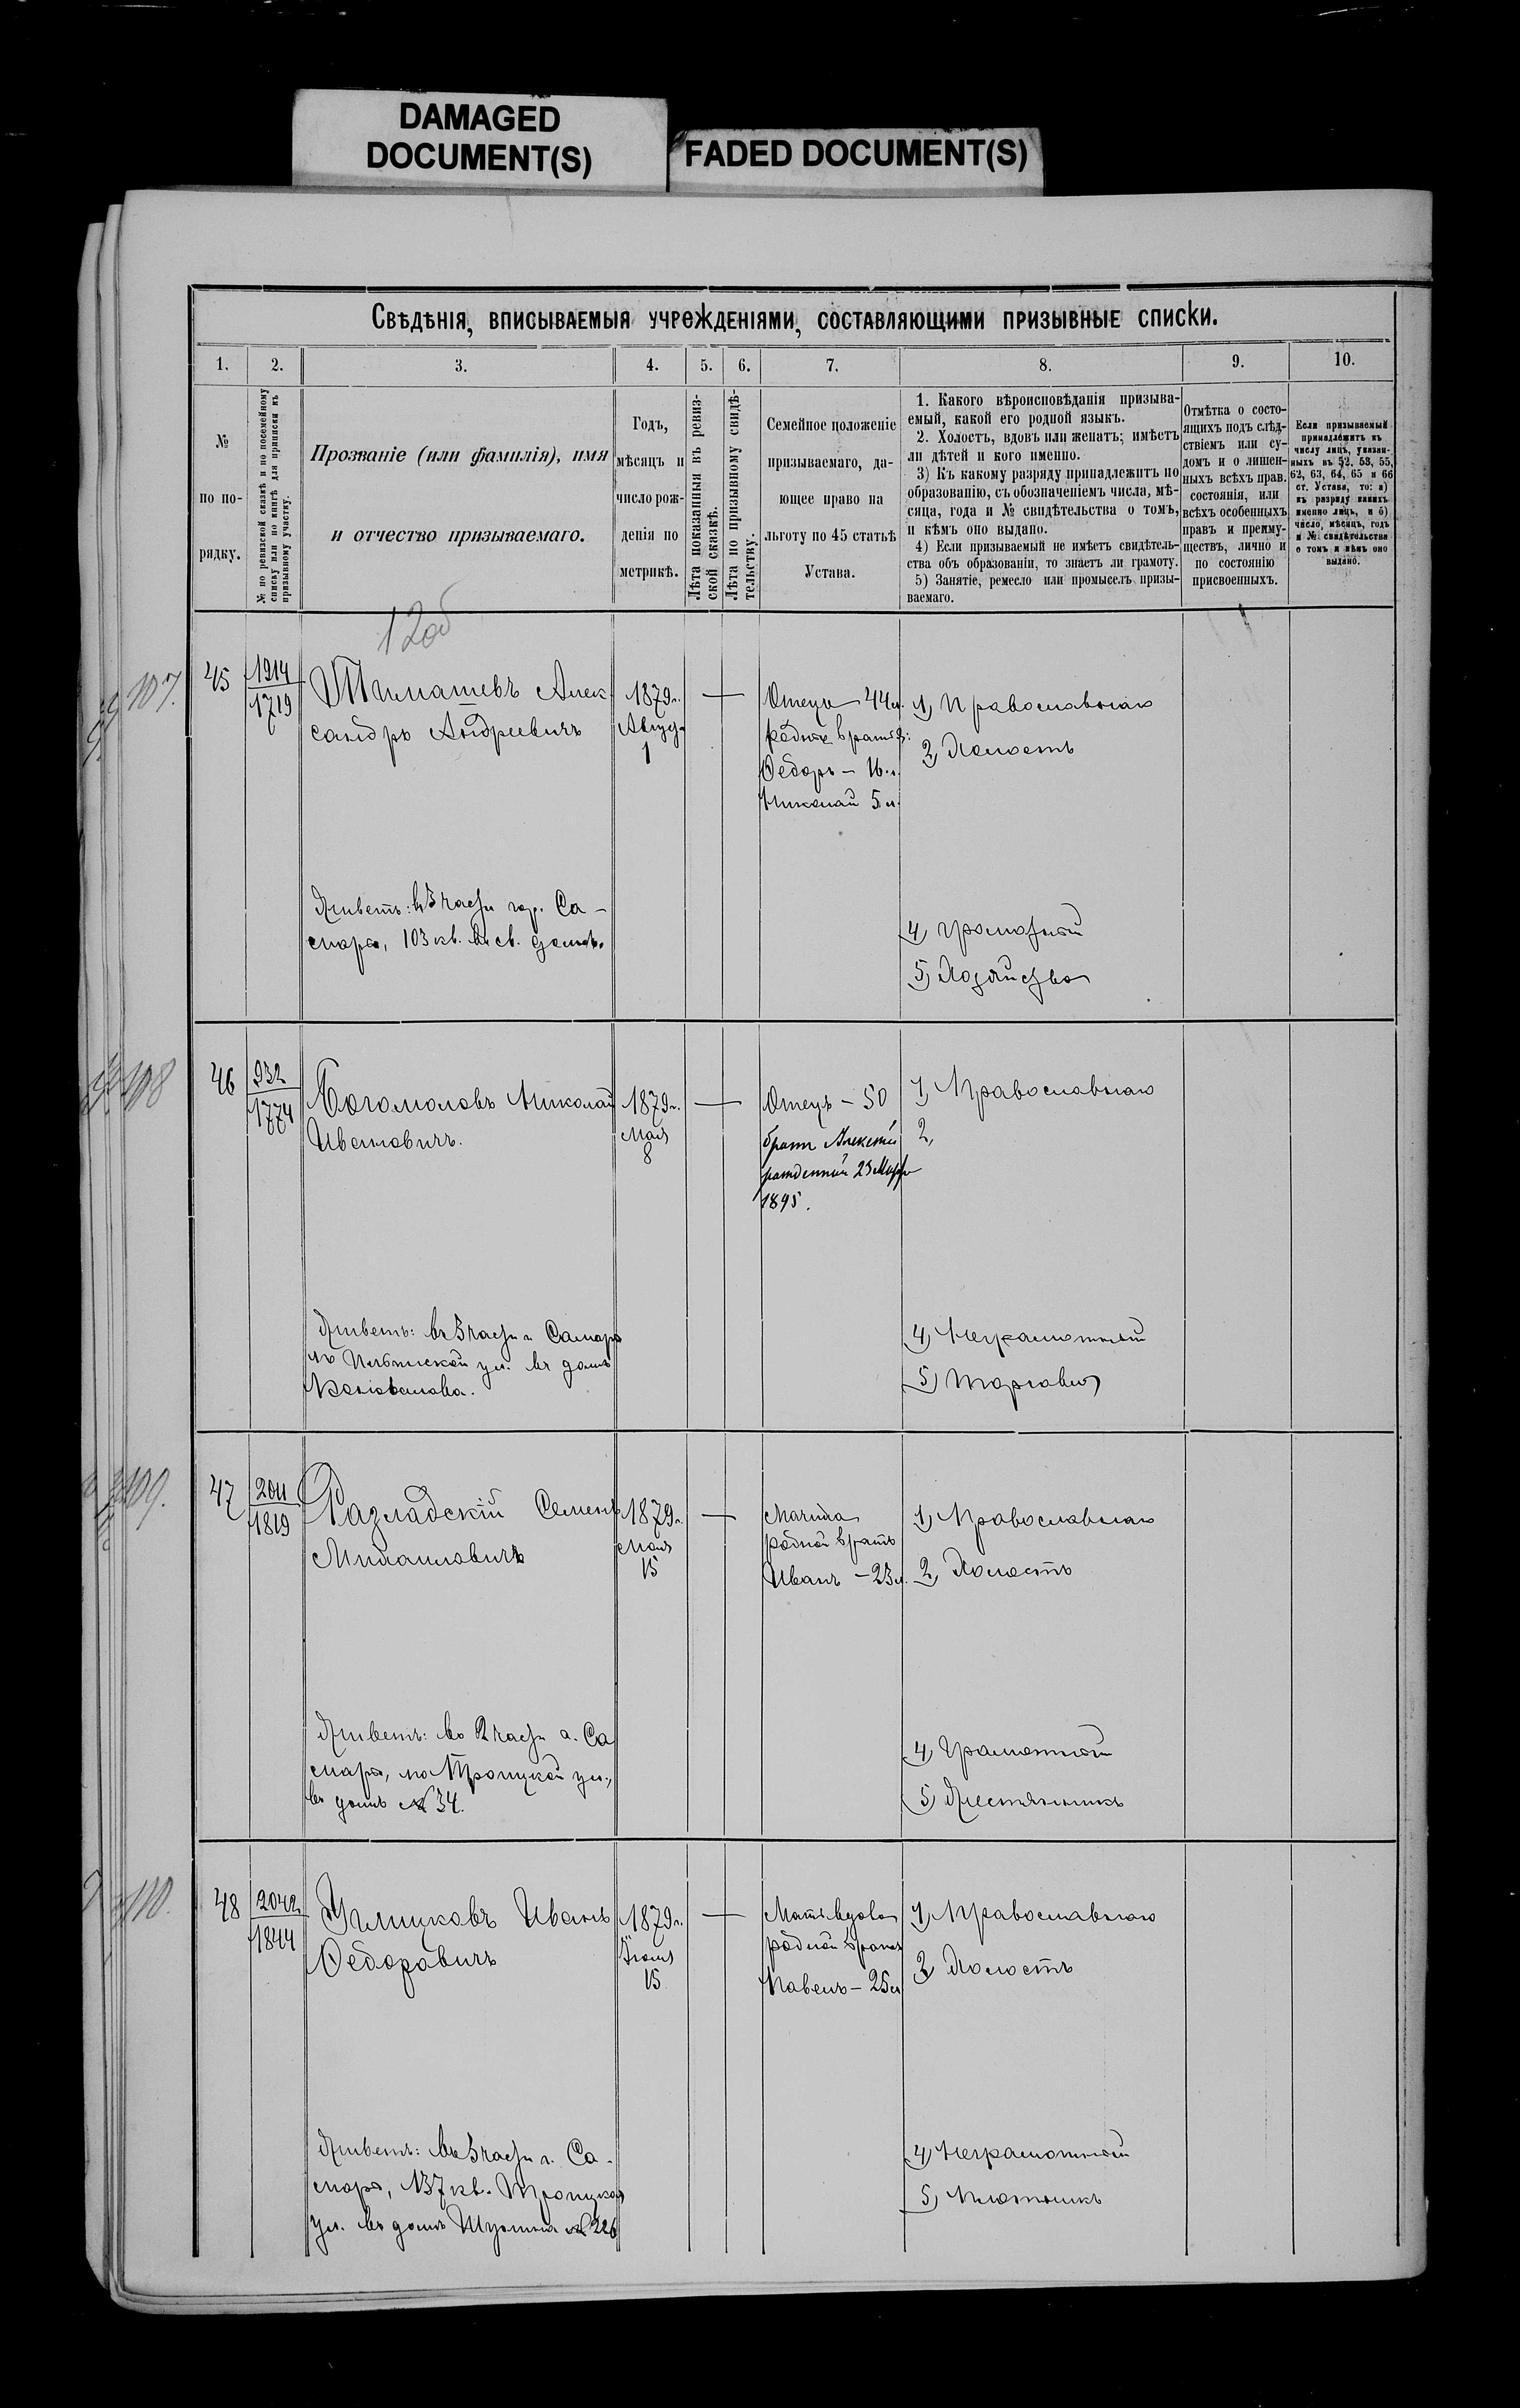 DAMAGED
DOCUMENT(S)
FADED DOCUMENT(S)
Свѣдѣнія, вписываемыя учрежденіями, составляющими призывные списки.
1. 2. 3. 4. 5. 6. 7. 8. 9. 10.
№
по по-
рядку.
№ по ревизской сказкѣ и по посемейному
списку или по книгѣ для приписки къ
призывному участку.
Прозваніе (или фамилія), имя
и отчество призываемаго.
Годъ,
мѣсяцъ и
число рож-
денія по
метрикѣ.
Лѣта показанныя въ ревиз-
ской сказкѣ.
Лѣта по призывному свидѣ-
тельству.
Семейное положеніе
призываемаго, да-
ющее право на
льготу по 45 статьѣ
Устава.
1. Какого вѣроисповѣданія призыва-
емый, какой его родной языкъ.
2. Холостъ, вдовъ или женатъ; имѣетъ
ли дѣтей и кого именно.
3) Къ какому разряду принадлежитъ по
образованію, съ обозначеніемъ числа, мѣ-
сяца, года и № свидѣтельства о томъ,
и кѣмъ оно выдано.
4) Если призываемый не имѣетъ свидѣтель-
ства объ образованіи, то знаетъ ли грамоту.
5) Занятіе, ремесло или промыселъ призы-
ваемаго.
Отмѣтка о состо-
ящихъ подъ слѣд-
ствіемъ или су-
домъ и о лишен-
ныхъ всѣхъ прав.
состоянія, или
всѣхъ особенныхъ
правъ и преиму-
ществъ, лично и
по состоянію
присвоенныхъ.
Если призываемый
принадлежитъ къ
числу лицъ, указан-
ныхъ въ 52, 53, 55,
62, 63, 64, 65 и 66
ст. Устава, то: а)
къ разряду какихъ
именно лицъ, и б)
число, мѣсяцъ, годъ
и № свидѣтельства
о томъ и кѣмъ оно
выдано.
12об
107.
45
1914
1719
Тимашевъ Алек
сандръ Андреевичъ
1879г.
Август
1
Отецъ 44л.
родные братья:
Федоръ – 16 л.
Николай 5 л.
1, Православнаго
2, Холостъ
Живетъ: въ 3 части гор. Са-
мары, 103 кв. въ св. домѣ.
4, грамотный
5, Хозяйство
108
46
932
1774
Богомоловъ Николай
Ивановичъ.
1879г.
Мая
8
Отецъ – 50
братъ Алексѣй
рожденный 23 Марта
1895.
1, Православнаго
2,
Живетъ: въ 3 части г. Самары
ул. въ домѣ
Коновалова.
4, Неграмотный
5, Торговля
109.
47
2011
1819
Разладскій Семенъ
Михаиловичъ
1879г.
Мая
15
Мачиха
родной братъ
Иванъ – 23 л.
1, Православнаго
2, Холостъ
Живетъ: во 2 части г. Са
мары, по Троицкой ул.,
въ домѣ № 34.
4, Грамотный
5, Жестяникъ
110.
48
2042
1844
Иванъ
Федоровичъ
1879г.
Іюня
15
Мать вдова
родной братъ
Павелъ – 25 л
1, Православнаго
2, Холостъ
Живетъ: въ 3 части г. Са-
мары, 137 кв. Троицкая
ул. въ домѣ № 226
4, Неграмотный
5, Плотникъ